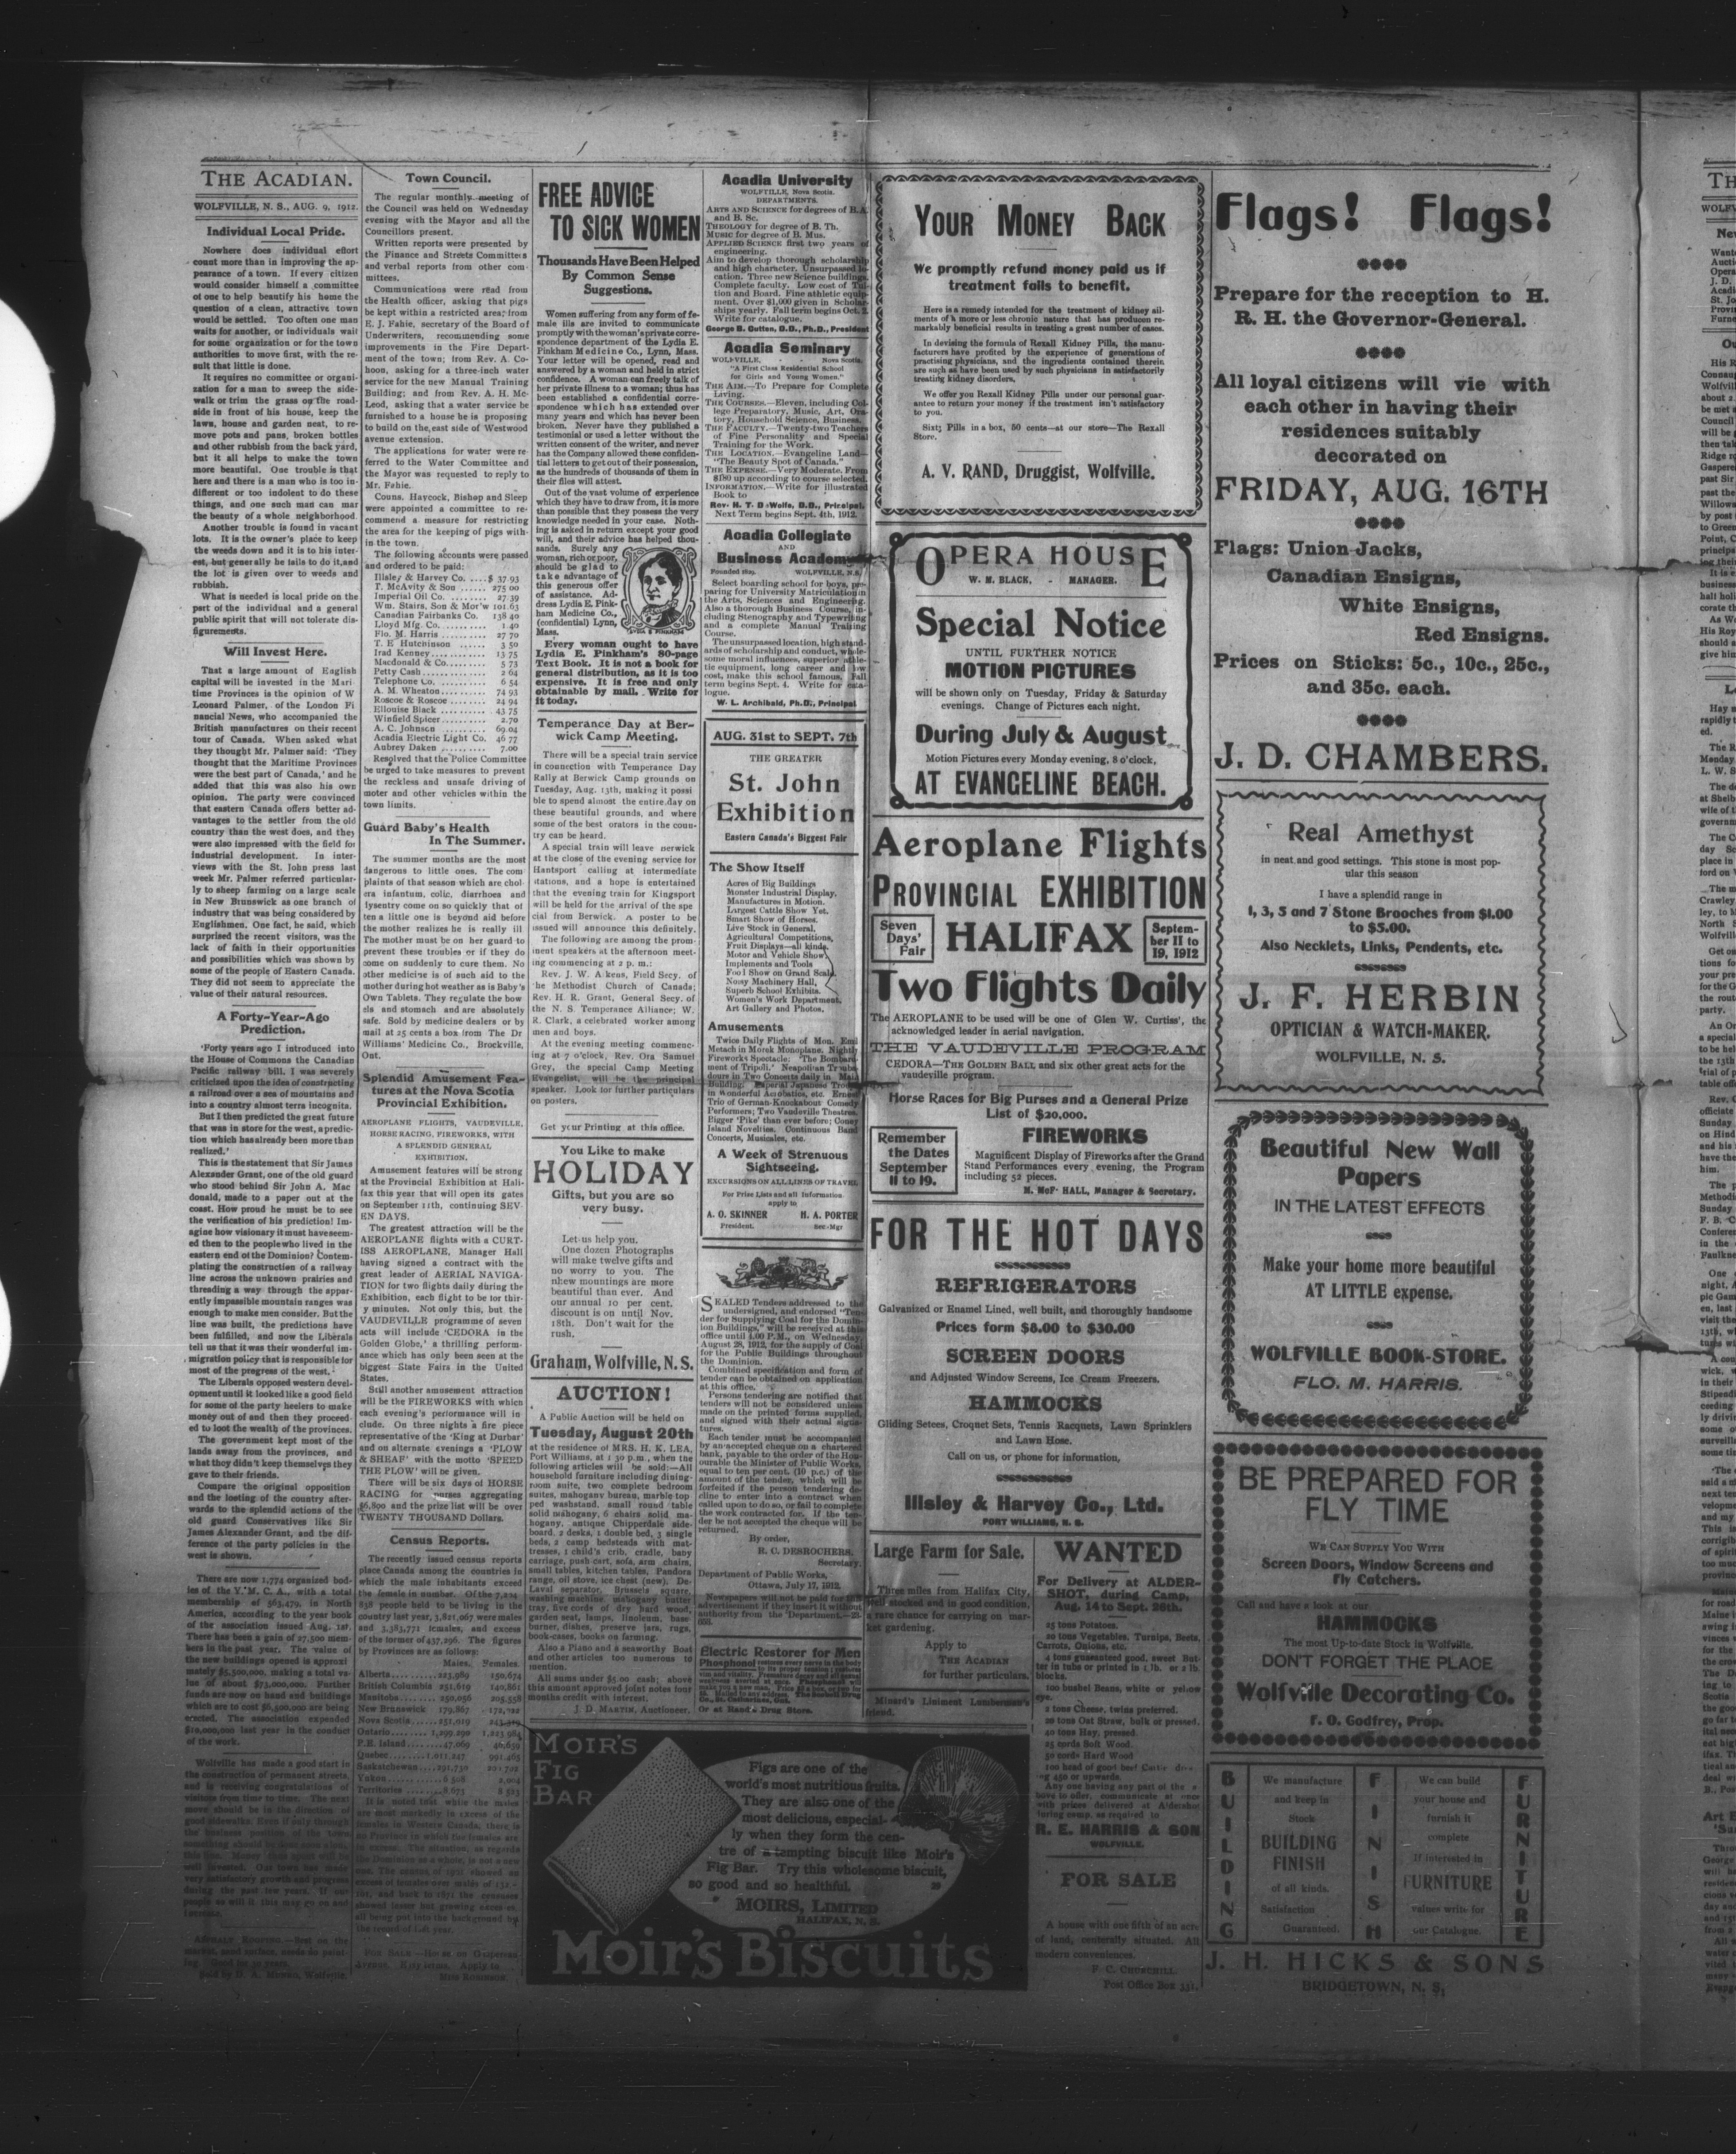 THE ACADIAN.
WOLFVILLE, N. S., AUG. 9, 1912.
Individual Local Pride.
Nowhere does individual effort
count more than in improving the ap-
pearance of a town. If every citizen
would consider himself a committee
of one to help beautify his home the
question of a clean, attractive town
would be settled. Too often one man
waits for another, or individuals wait
for some organization or for the town
authorities to move first, with the re-
sult that little is done.
It requires no committee or organi-
zation for a man to sweep the side-
walk or trim the grass on the road-
side in front of his house, keep the
laws, house and garden neat, to re-
move pots and pans, broken bottles
and other rubbish from the back yard,
but it all helps to make the town
more beautiful. One trouble is that
here and there is a man who is too in-
different or too indolent to do these
things, and one such man can mar
the beauty of a whole neighborhood.
Another trouble is found in vacant
lots. It is the owner's place to keep
the weeds down and it is to his inter-
est, but generally he fails to do it, and
the lot is given over to weeds and
rubbish.
What is needed is local pride on the
part of the individual and a general
public spirit that will not tolerate dis-
figurements.
Will Invest Here.
That a large amount of English
capital will be invested in the Mari-
time Provinces is the opinion of W
Leonard Palmer, of the London Fi
nancial News, who accompanied the
British manufactures on their recent
tour of Canada. When asked what
they thought Mr. Palmer said: 'They
thought that the Maritime Provinces
were the best part of Canada,' and he
added that this was also his own
opinion. The party were convinced
that eastern Canada offers better ad-
vantages to the settler from the old
country than the west does, and they
were also impressed with the field for
industrial development. In inter-
views with the St. John press last
week Mr. Palmer referred particular-
ly to sheep farming on a large scale
in New Brunswick as one branch of
industry that was being considered by
Englishmen. One fact, he said, which
surprised the recent visitors, was the
lack of faith in their opportunities
and possibilities which was shown by
some of the people of Eastern Canada.
They did not seem to appreciate the
value of their natural resources.
A Forty-Year-Ago
Prediction.
'Forty years ago I introduced into
the House of Commons the Canadian
Pacific railway bill. I was severely
criticised upon the idea of constructing
a railroad over a sea of mountains and
into a country almost terra incognita.
But I then predicted the great future
that was in store for the west, a predic-
tion which has already been more than
realized.'
This is the statement that Sir James
Alexander Grant, one of the old guard
who stood behind Sir John A. Mac
donald, made to a paper out at the
coast. How proud he must be to see
the verification of his prediction! Im-
agine how visionary it must have seem-
ed then to the people who lived in the
eastern end of the Dominion? Contem-
plating the construction of a railway
line across the unknown prairies and
threading a way through the appar-
ently impassible mountain ranges was
enough to make men consider. But the
line was built, the predictions have
been fulfilled, and now the Liberals
tell us that it was their wonderful im-
migration policy that is responsible for
most of the progress of the west.
The Liberals opposed western devel-
opment until it looked like a good field
for some of the party heelers to make
money out of and then they proceed-
ed to loot the wealth of the provinces.
The government kept most of the
lands away from the provinces, and
what they didn't keep themselves they
gave to their friends.
Compare the original opposition
and the looting of the country after-
wards to the splendid actions of the
old guard Conservatives like Sir
James Alexander Grant, and the dif-
ference of the party policies in the
west is shown.
There are now 1,774 organized bod-
ies of the Y. M. C. A., with a total
membership of 563,479, in North
America, according to the year book
of the association issued Aug. 1st.
There has been a gain of 27,500 mem-
bers in the past year. The value of
the new buildings opened is approxi
mately $5,500,000, making a total va-
lue of about $73,000,000. Further
funds are now on hand and buildings
which are to cost $6,500,000 are being
erected. The association expended
$10,000,000 last year in the conduct
of the work.
Wolfville has made a good start in
the construction of permanent streets,
and is receiving congratulations of
visitors from time to time. The next
move should be in the direction of
good sidewalks.
Town Council.
The regular monthly meeting of
the Council was held on Wednesday
evening with the Mayor and all the
Councillors present.
Written reports were presented by
the Finance and Streets Committees
and verbal reports from other com-
mittees.
Communications were read from
the Health officer, asking that pigs
be kept within a restricted area; from
E. J. Fahie, secretary of the Board of
Underwriters, recommending some
improvements in the Fire Depart-
ment of the town; from Rev. A. Co-
hoon, asking for a three-inch water
service for the new Manual Training
Building; and from Rev. A. H. Mc-
Leod, asking that a water service be
furnished to a house he is proposing
to build on the east side of Westwood
avenue extension.
The applications for water were re-
ferred to the Water Committee and
the Mayor was requested to reply to
Mr. Fahie.
Couns. Haycock, Bishop and Sleep
were appointed a committee to re-
commend a measure for restricting
the area for the keeping of pigs with-
in the town.
The following accounts were passed
and ordered to be paid:
Illsley & Harvey Co. ....$ 37 93
T. McAvity & Son ...... 275 00
Imperial Oil Co. ........ 27.39
Wm. Stairs, Son & Mor'w 101.63
Canadian Fairbanks Co. 138 40
Lloyd Mfg. Co........... 1.40
Flo. M. Harris .......... 27 70
T. E Hutchinson ...... 3 50
Irad Kenney............ 13 75
Macdonald & Co......... 5 73
Petty Cash ............. 2 64
Telephone Co. .......... 6 54
A. M. Wheaton......... 74 93
Roscoe & Roscoe ....... 24 94
Ellouise Black .......... 43 75
Winfield Spicer.......... 2.70
A. C. Johnson .......... 69.04
Acadia Electric Light Co. 46 77
Aubrey Daken .......... 7.00
Resolved that the Police Committee
be urged to take measures to prevent
the reckless and unsafe driving of
moter and other vehicles within the
town limits.
Guard Baby's Health
In The Summer.
The summer months are the most
dangerous to little ones. The com
plaints of that season which are chol-
era infantum, colic, diarrhoea and
lysentry come on so quickly that of
ten a little one is beyond aid before
the mother realizes he is really ill
The mother must be on her guard to
prevent these troubles or if they do
come on suddenly to cure them. No
other medicine is of such aid to the
mother during hot weather as is Baby's
Own Tablets. They regulate the bow
els and stomach and are absolutely
safe. Sold by medicine dealers or by
mail at 25 cents a box from The Dr
Williams' Medicine Co., Brockville,
Ont.
Splendid Amusement Fea-
tures at the Nova Scotia
Provincial Exhibition.
AEROPLANE FLIGHTS, VAUDEVILLE,
HORSE RACING, FIREWORKS, WITH
A SPLENDID GENERAL
EXHIBITION.
Amusement features will be strong
at the Provincial Exhibition at Hali-
fax this year that will open its gates
on September 11th, continuing SEV-
EN DAYS.
The greatest attraction will be the
AEROPLANE flights with a CURT-
ISS AEROPLANE, Manager Hall
having signed a contract with the
great leader of AERIAL NAVIGA-
TION for two flights daily during the
Exhibition, each flight to be for thir-
ty minutes. Not only this, but the
VAUDEVILLE programme of seven
acts will include 'CEDORA in the
Golden Globe,' a thrilling perform-
ance which has only been seen at the
biggest State Fairs in the United
States.
Still another amusement attraction
will be the FIREWORKS with which
each evening's performance will in-
clude. On three nights a fire piece
representative of the 'King at Durbar'
and on alternate evenings a 'PLOW
& SHEAF' with the motto 'SPEED
THE PLOW' will be given.
There will be six days of HORSE
RACING for purses aggregating
$6,800 and the prize list will be over
TWENTY THOUSAND Dollars.
Census Reports.
The recently issued census reports
place Canada among the countries in
which the male inhabitants exceed
the female in number. Of the 7,204,
838 people held to be living in the
country last year, 3,821,067 were males
and 3,383,771 females, and excess
of the former of 437,296. The figures
by Provinces are as follows:
Males. Females.
Alberta..........223,989 150,674
British Columbia 251,619 140,861
Manitoba......250,056 205,558
New Brunswick 179,867 172,022
Nova Scotia......251,019
Ontario........1,299,290 1,223,984
P.E. Island......47,069 46,659
Quebec........1,011,247 991,465
Saskatchewan...291,730 201,702
Yukon..........6,508 2,004
Territories.......8,673 8,523
FREE ADVICE
TO SICK WOMEN
Thousands Have Been Helped
By Common Sense
Suggestions.
Women suffering from any form of fe-
male ills are invited to communicate
promptly with the woman's private corre-
spondence department of the Lydia E.
Pinkham Medicine Co., Lynn, Mass.
Your letter will be opened, read and
answered by a woman and held in strict
confidence. A woman can freely talk of
her private illness to a woman; thus has
been established a confidential corre-
spondence which has extended over
many years and which has never been
broken. Never have they published a
testimonial or used a letter without the
written consent of the writer, and never
has the Company allowed these confiden-
tial letters to get out of their possession,
as the hundreds of thousands of them in
their files will attest.
Out of the vast volume of experience
which they have to draw from, it is more
than possible that they possess the very
knowledge needed in your case. Noth-
ing is asked in return except your good
will, and their advice has helped thou-
sands. Surely any
woman, rich or poor,
should be glad to
take advantage of
this generous offer
of assistance. Ad-
dress Lydia E. Pink-
ham Medicine Co.,
(confidential) Lynn,
Mass.
LYDIA E. PINKHAM
Every woman ought to have
Lydia E. Pinkham's 80-page
Text Book. It is not a book for
general distribution, as it is too
expensive. It is free and only
obtainable by mail. Write for
it today.
Temperance Day at Ber-
wick Camp Meeting.
There will be a special train service
in connection with Temperance Day
Rally at Berwick Camp grounds on
Tuesday, Aug. 13th, making it possi
ble to spend almost the entire day on
these beautiful grounds, and where
some of the best orators in the coun-
try can be heard.
A special train will leave nerwick
at the close of the evening service for
Hantsport calling at intermediate
stations, and a hope is entertained
that the evening train for Kingsport
will be held for the arrival of the spe
cial from Berwick. A poster to be
issued will announce this definitely.
The following are among the prom-
inent speakers at the afternoon meet-
ing commencing at 2 p. m.:
Rev. J. W. Aikens, Field Secy. of
the Methodist Church of Canada;
Rev. H. R. Grant, General Secy. of
the N. S. Temperance Alliance; W.
R. Clark, a celebrated worker among
men and boys.
At the evening meeting commenc-
ing at 7 o'clock, Rev. Ora Samuel
Grey, the special Camp Meeting
Evangelist, will be the principal
speaker. Look for further particulars
on posters.
Get your Printing at this office.
You Like to make
HOLIDAY
Gifts, but you are so
very busy.
Let us help you.
One dozen Photographs
will make twelve gifts and
no worry to you. The
nhew mountings are more
beautiful than ever. And
our annual 10 per cent.
discount is on until Nov.
18th. Don't wait for the
rush.
Graham, Wolfville, N. S.
AUCTION!
A Public Auction will be held on
Tuesday, August 20th
at the residence of MRS. H. K. LEA,
Port Williams, at 1 30 p.m., when the
following articles will be sold:—All
household furniture including dining-
room suite, two complete bedroom
suites, mahogany bureau, marble top
ped washstand, small round table
solid mahogany, 6 chairs solid ma-
hogany, antique Chipperdale side-
board, 2 desks, 1 double bed, 3 single
beds, 2 camp bedsteads with mat-
tresses, 1 child's crib, cradle, baby
carriage, push cart, sofa, arm chairs,
small tables, kitchen tables, Pandora
range, oil stove, ice chest (new). De-
Laval separator, Brussels square,
washing machine, mahogany butter
tray, five cords of dry hard wood,
garden seat, lamps, linoleum, base-
burner, dishes, preserve jars, rugs,
book-cases, books on farming.
Also a Piano and a seaworthy Boat
and other articles too numerous to
mention.
All sums under $5.00 cash; above
this amount approved joint notes four
months credit with interest.
J. D. MARTIN, Auctioneer.
Acadia University
WOLFVILLE, Nova Scotia.
DEPARTMENTS.
ARTS AND SCIENCE for degrees of B. A.
and B. Sc.
THEOLOGY for degree of B. Th.
MUSIC for degree of B. Mus.
APPLIED SCIENCE first two years of
engineering.
Aim to develop thorough scholarship
and high character. Unsurpassed lo-
cation. Three new Science buildings.
Complete faculty. Low cost of Tui-
tion and Board. Fine athletic equip-
ment. Over $1,000 given in Scholar-
ships yearly. Fall term begins Oct. 2.
Write for catalogue.
George B. Cutten, D.D., Ph.D., President
Acadia Seminary
WOLFVILLE, - - Nova Scotia.
"A First Class Residential School
for Girls and Young Women."
THE AIM.—To Prepare for Complete
Living.
THE COURSES.—Eleven, including Col-
lege Preparatory, Music, Art, Ora-
tory, Household Science, Business.
THE FACULTY.—Twenty-two Teachers
of Fine Personality and Special
Training for the Work.
THE LOCATION.—Evangeline Land—
"The Beauty Spot of Canada."
THE EXPENSE.—Very Moderate. From
$180 up according to course selected.
INFORMATION.—Write for illustrated
Book to
Rev. H. T. DeWolfe, D.D., Principal.
Next Term begins Sept. 4th, 1912.
Acadia Collegiate
AND
Business Academy
Founded 1829. WOLFVILLE, N.S.
Select boarding school for boys, pre-
paring for University Matriculation in
the Arts, Sciences and Engineering.
Also a thorough Business Course, in-
cluding Stenography and Typewriting
and a complete Manual Training
Course.
The unsurpassed location, high stand-
ards of scholarship and conduct, whole-
some moral influences, superior athle-
tic equipment, long career and low
cost, make this school famous. Fall
term begins Sept. 4. Write for cata-
logue.
W. L. Archibald, Ph.D., Principal
AUG. 31st to SEPT. 7th
THE GREATER
St. John
Exhibition
Eastern Canada's Biggest Fair
The Show Itself
Acres of Big Buildings
Monster Industrial Display.
Manufactures in Motion.
Largest Cattle Show Yet.
Smart Show of Horses.
Live Stock in General.
Agricultural Competitions,
Fruit Displays—all kinds.
Motor and Vehicle Show,
Implements and Tools
Food Show on Grand Scale,
Noisy Machinery Hall,
Superb School Exhibits.
Women's Work Department,
Art Gallery and Photos.
Amusements
Twice Daily Flights of Mon. Emil
Metach in Morek Monoplane. Nightly
Fireworks Spectacle: 'The Bombard-
ment of Tripoli.' Neapolitan Trouba-
dours in Two Concerts daily in Main
Building; Imperial Japanese Troupe
in Wonderful Acrobatics, etc. Ernest
Trio of German Knockabout Comedy
Performers; Two Vaudeville Theatres.
Bigger 'Pike' than ever before; Coney
Island Novelties. Continuous Band
Concerts, Musicales, etc.
A Week of Strenuous
Sightseeing.
EXCURSIONS ON ALL LINES OF TRAVEL
For Prize Lists and all Information
apply to
A. O. SKINNER H. A. PORTER
President. Sec-Mgr
SEALED Tenders addressed to the
undersigned, and endorsed "Ten-
der for Supplying Coal for the Domin-
ion Buildings," will be received at this
office until 4.00 P.M., on Wednesday,
August 28, 1912, for the supply of Coal
for the Public Buildings throughout
the Dominion.
Combined specification and form of
tender can be obtained on application
at this office.
Persons tendering are notified that
tenders will not be considered unless
made on the printed forms supplied,
and signed with their actual signa-
tures.
Each tender must be accompanied
by an accepted cheque on a chartered
bank, payable to the order of the Hon-
ourable the Minister of Public Works,
equal to ten per cent. (10 p.c.) of the
amount of the tender, which will be
forfeited if the person tendering de-
cline to enter into a contract when
called upon to do so, or fail to complete
the work contracted for. If the ten-
der be not accepted the cheque will be
returned.
By order,
R. C. DESROCHERS,
Secretary.
Department of Public Works,
Ottawa, July 17, 1912.
Newspapers will not be paid for this
advertisement if they insert it without
authority from the Department.—23-
Electric Restorer for Men
Phosphonol restores every nerve in the body
to its proper tension; restores
vim and vitality. Premature decay and all sexual
weakness averted at once. Phosphonol will
make you a new man. Price $3 a box, or two for
$5. Mailed to any address. The Scobell Drug
Co., St. Catharines, Ont.
For at Rand's Drug Store.
MOIR'S
FIG
BAR
Figs are one of the
world's most nutritious fruits.
They are also one of the
most delicious, especial-
ly when they form the cen-
tre of a tempting biscuit like Moir's
Fig Bar. Try this wholesome biscuit,
so good and so healthful.
MOIRS, LIMITED
HALIFAX, N. S.
Moir's Biscuits
YOUR MONEY BACK
We promptly refund money paid us if
treatment fails to benefit.
Here is a remedy intended for the treatment of kidney ail-
ments of a more or less chronic nature that has producen re-
markably beneficial results in treating a great number of cases.
In devising the formula of Rexall Kidney Pills, the manu-
facturers have profited by the experience of generations of
practising physicians, and the ingredients contained therein
are such as have been used by such physicians in satisfactorily
treating kidney disorders.
We offer you Rexall Kidney Pills under our personal guar-
antee to return your money if the treatment isn't satisfactory
to you.
Sixty Pills in a box, 50 cents—at our store—The Rexall
Store.
A. V. RAND, Druggist, Wolfville.
OPERA HOUSE
W. M. BLACK, - MANAGER.
Special Notice
UNTIL FURTHER NOTICE
MOTION PICTURES
will be shown only on Tuesday, Friday & Saturday
evenings. Change of Pictures each night.
During July & August
Motion Pictures every Monday evening, 8 o'clock,
AT EVANGELINE BEACH.
Aeroplane Flights
PROVINCIAL EXHIBITION
Seven
Days'
Fair
HALIFAX
Septem-
ber 11 to
19, 1912
Two Flights Daily
The AEROPLANE to be used will be one of Glen W. Curtiss', the
acknowledged leader in aerial navigation.
THE VAUDEVILLE PROGRAM
CEDORA—THE GOLDEN BALL and six other great acts for the
vaudeville program.
Horse Races for Big Purses and a General Prize
List of $20,000.
Remember
the Dates
September
11 to 19.
FIREWORKS
Magnificent Display of Fireworks after the Grand
Stand Performances every evening, the Program
including 52 pieces.
M. McF. HALL, Manager & Secretary.
FOR THE HOT DAYS
REFRIGERATORS
Galvanized or Enamel Lined, well built, and thoroughly handsome
Prices form $8.00 to $30.00
SCREEN DOORS
and Adjusted Window Screens, Ice Cream Freezers.
HAMMOCKS
Gliding Setees, Croquet Sets, Tennis Racquets, Lawn Sprinklers
and Lawn Hose.
Call on us, or phone for information,
Illsley & Harvey Co., Ltd.
PORT WILLIAMS, N. S.
Large Farm for Sale.
Three miles from Halifax City,
well stocked and in good condition,
a rare chance for carrying on mar-
ket gardening.
Apply to
THE ACADIAN
for further particulars.
Minard's Liniment Lumberman's
friend.
WANTED
For Delivery at ALDER-
SHOT, during Camp,
Aug. 14 to Sept. 26th.
25 tons Potatoes.
20 tons Vegetables. Turnips, Beets,
Carrots, Onions, etc.
4 tons guaranteed good, sweet But-
ter in tubs or printed in 1 lb. or 2 lb.
blocks.
100 bushel Beans, white or yelow
eye.
2 tons Cheese, twins preferred.
20 tons Oat Straw, bulk or pressed.
40 tons Hay, pressed.
25 cords Soft Wood.
50 cords Hard Wood
100 head of good beef Cattle
450 or upwards.
R. E. HARRIS & SON
WOLFVILLE.
FOR SALE
A house with one fifth of an acre
of land, centerally situated. All
modern conveniences.
F. C. CHURCHILL.
Post Office Box 331.
Flags! Flags!
Prepare for the reception to H.
R. H. the Governor-General.
All loyal citizens will vie with
each other in having their
residences suitably
decorated on
FRIDAY, AUG. 16TH
Flags: Union Jacks,
Canadian Ensigns,
White Ensigns,
Red Ensigns.
Prices on Sticks: 5c., 10c., 25c.,
and 35c. each.
J. D. CHAMBERS.
Real Amethyst
in neat and good settings. This stone is most pop-
ular this season
I have a splendid range in
1, 3, 5 and 7 Stone Brooches from $1.00
to $5.00.
Also Necklets, Links, Pendents, etc.
J. F. HERBIN
OPTICIAN & WATCH-MAKER,
WOLFVILLE, N. S.
Beautiful New Wall
Papers
IN THE LATEST EFFECTS
Make your home more beautiful
AT LITTLE expense.
WOLFVILLE BOOK-STORE.
FLO. M. HARRIS.
BE PREPARED FOR
FLY TIME
WE CAN SUPPLY YOU WITH
Screen Doors, Window Screens and
Fly Catchers.
Call and have a look at our
HAMMOCKS
The most Up-to-date Stock in Wolfville.
DON'T FORGET THE PLACE
Wolfville Decorating Co.
F. O. Godfrey, Prop.
BUILDING
We manufacture
and keep in
Stock
BUILDING
FINISH
of all kinds.
Satisfaction
Guaranteed.
FINISH
We can build
your house and
furnish it
complete
If interested in
FURNITURE
values write for
our Catalogue.
FURNITURE
J. H. HICKS & SONS
BRIDGETOWN, N. S.